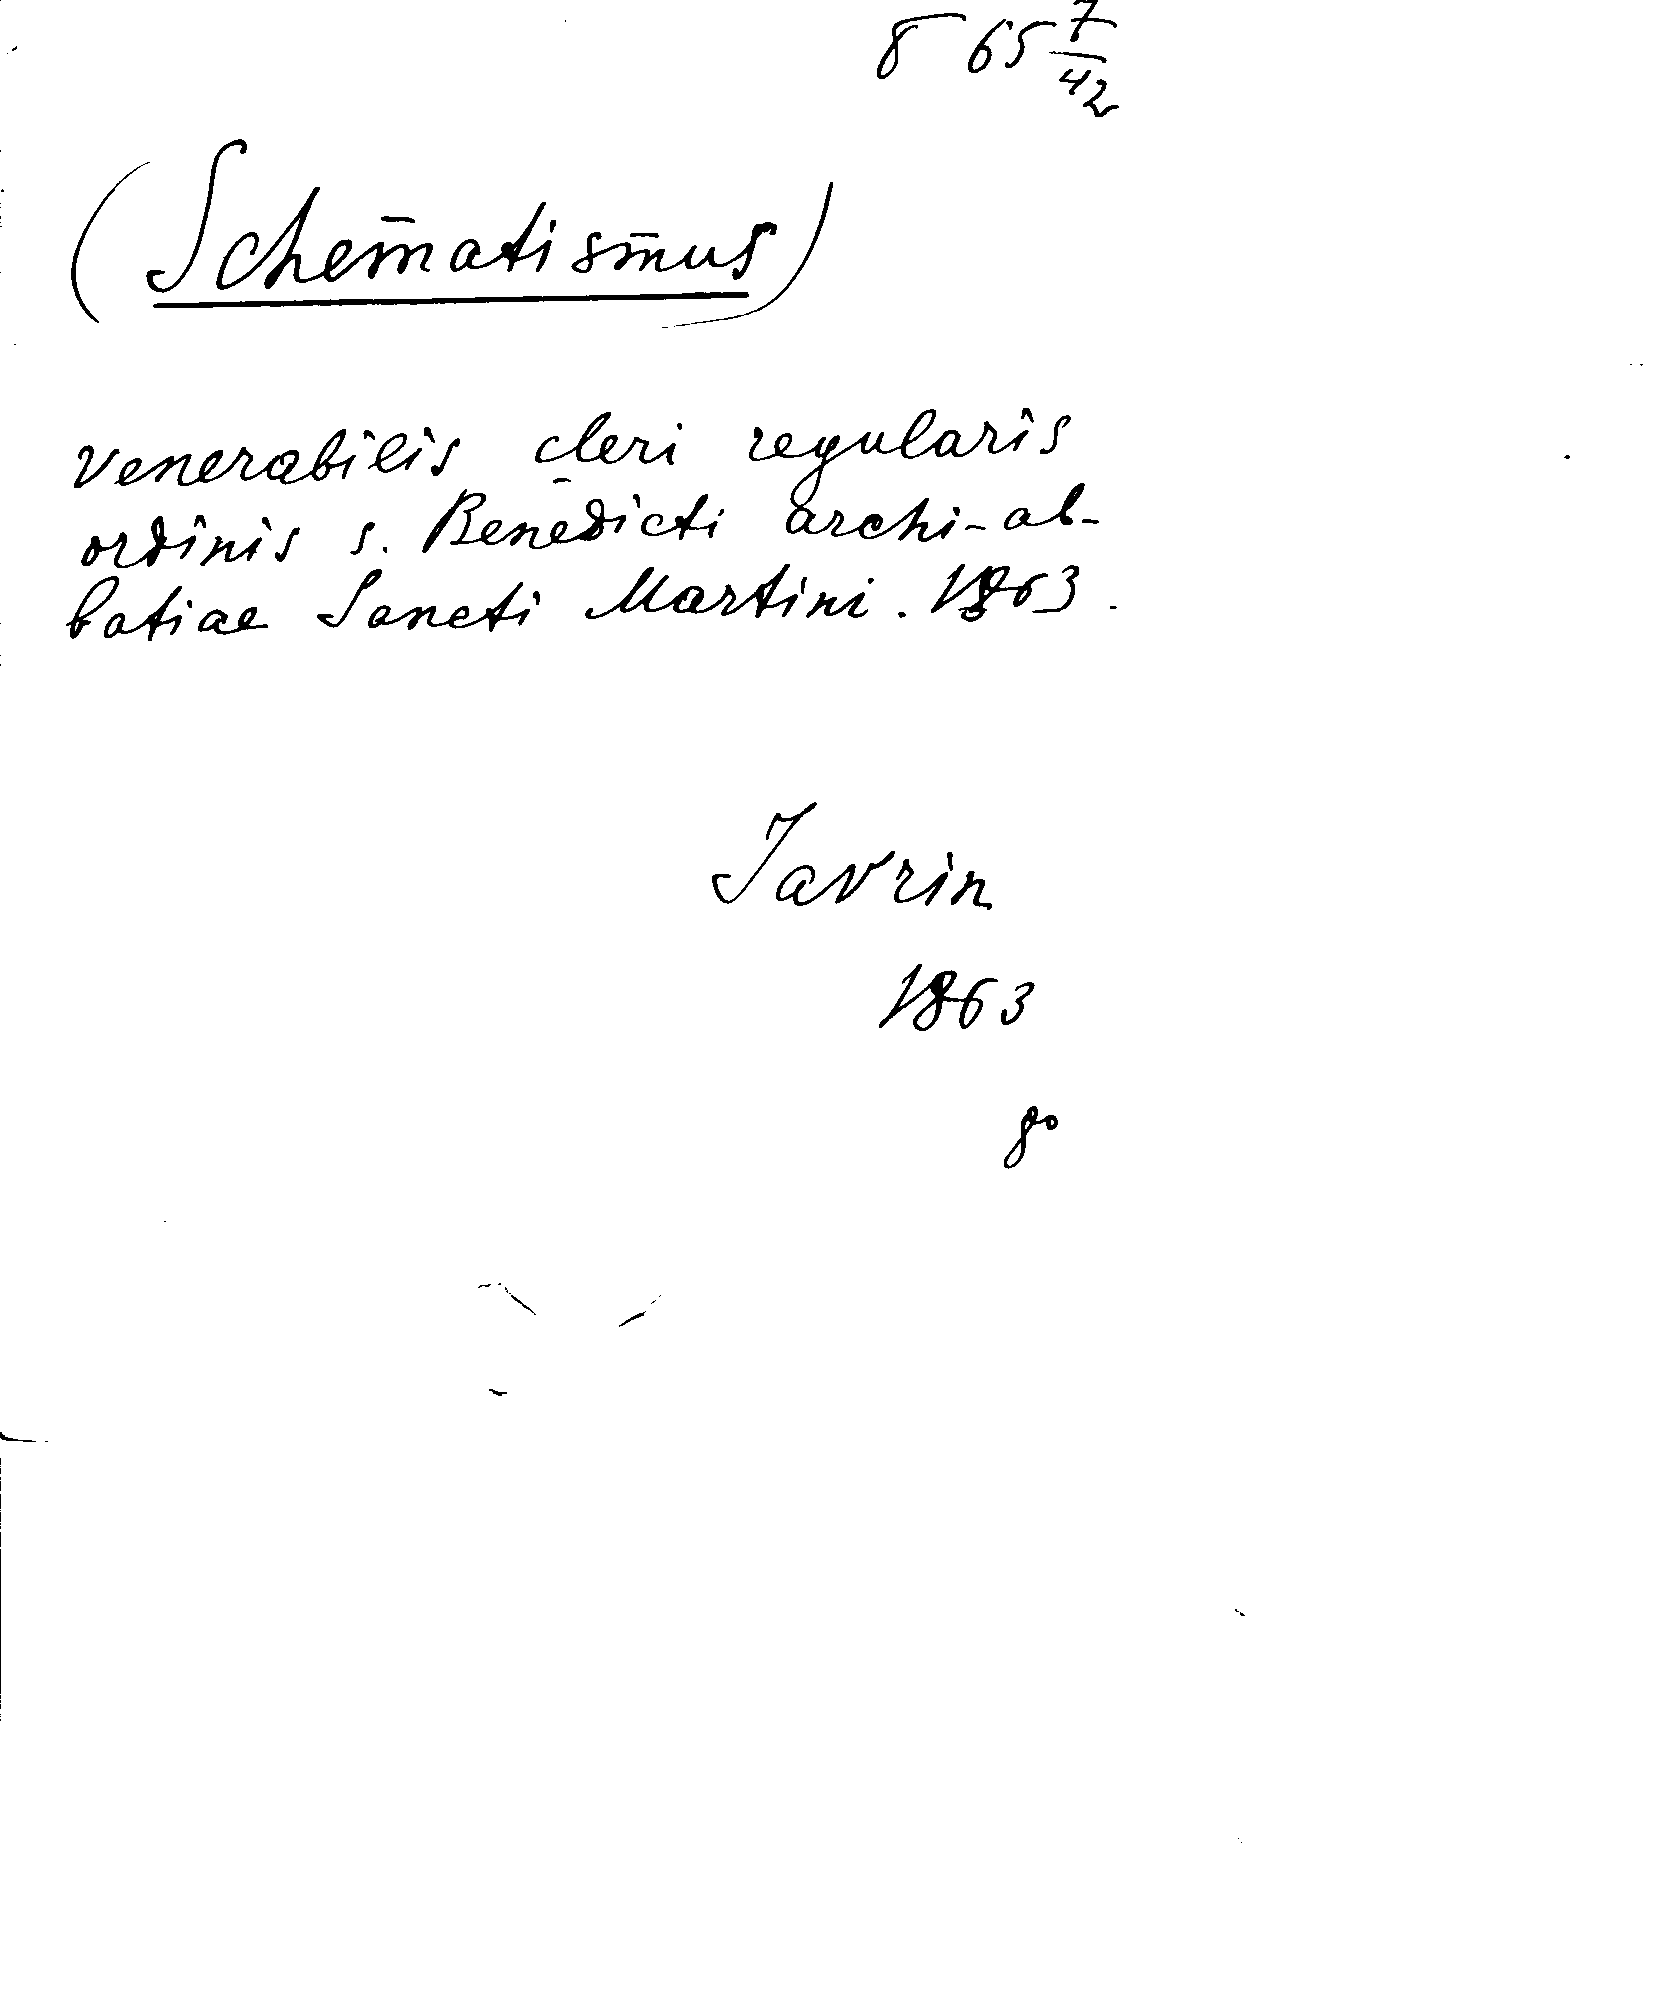 8 65 7/42
(Schematismus)
venerabilis cleri regularis
ordinis s. Benedicti archi-ab-
batiae Sancti Martini. 1863.
Javrin
1863
8°